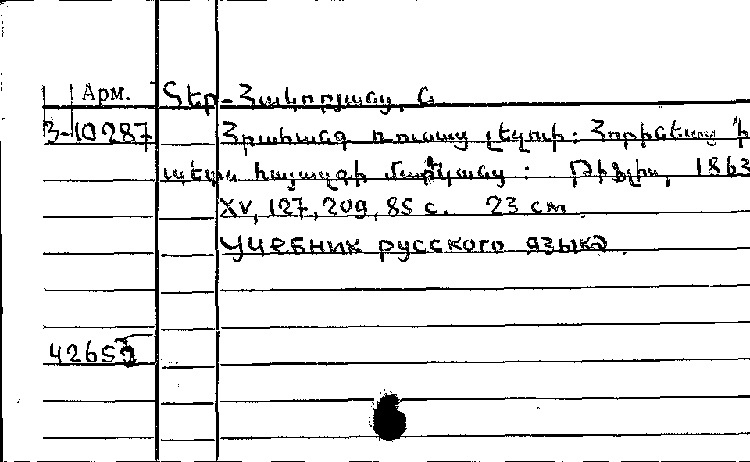 Арм. Տեր-Հակոբյանց, Ս
3-10287 Հրահանգ ռուսաց լեզուի: Հորինեաց ի
պետս հայազգի մանկանց: Թիֆլիս, 1863
XV, 127, 209, 85 с. 23 см.
Учебник русского языка.
42653